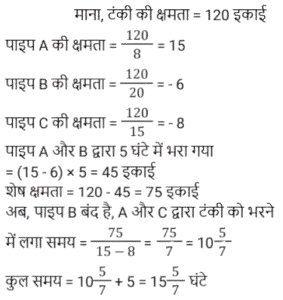 माना, टंकी की क्षमता = 120 इकाई
पाइप A की क्षमता = 120/8 = 15
पाइप B की क्षमता = 120/20 = - 6
पाइप C की क्षमता = 120/15 = - 8
पाइप A और B द्वारा 5 घंटे में भरा गया
= (15 - 6) × 5 = 45 इकाई
शेष क्षमता = 120 - 45 = 75 इकाई
अब, पाइप B बंद है, A और C द्वारा टंकी को भरने
में लगा समय = 75/(15 – 8) = 75/7 = 10 5/7
कुल समय = 10 5/7 + 5 = 15 5/7 घंटे